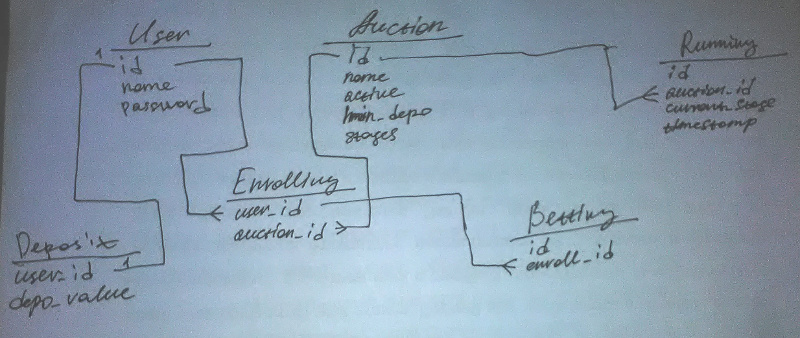 User
1
id
name
password
Auction
id
name
active
min_depo
stages
Running
id
auction_id
current_stage
timestamp
Enrolling
user_id
auction_id
Betting
id
enroll_id
Deposit
user_id 1
depo_value